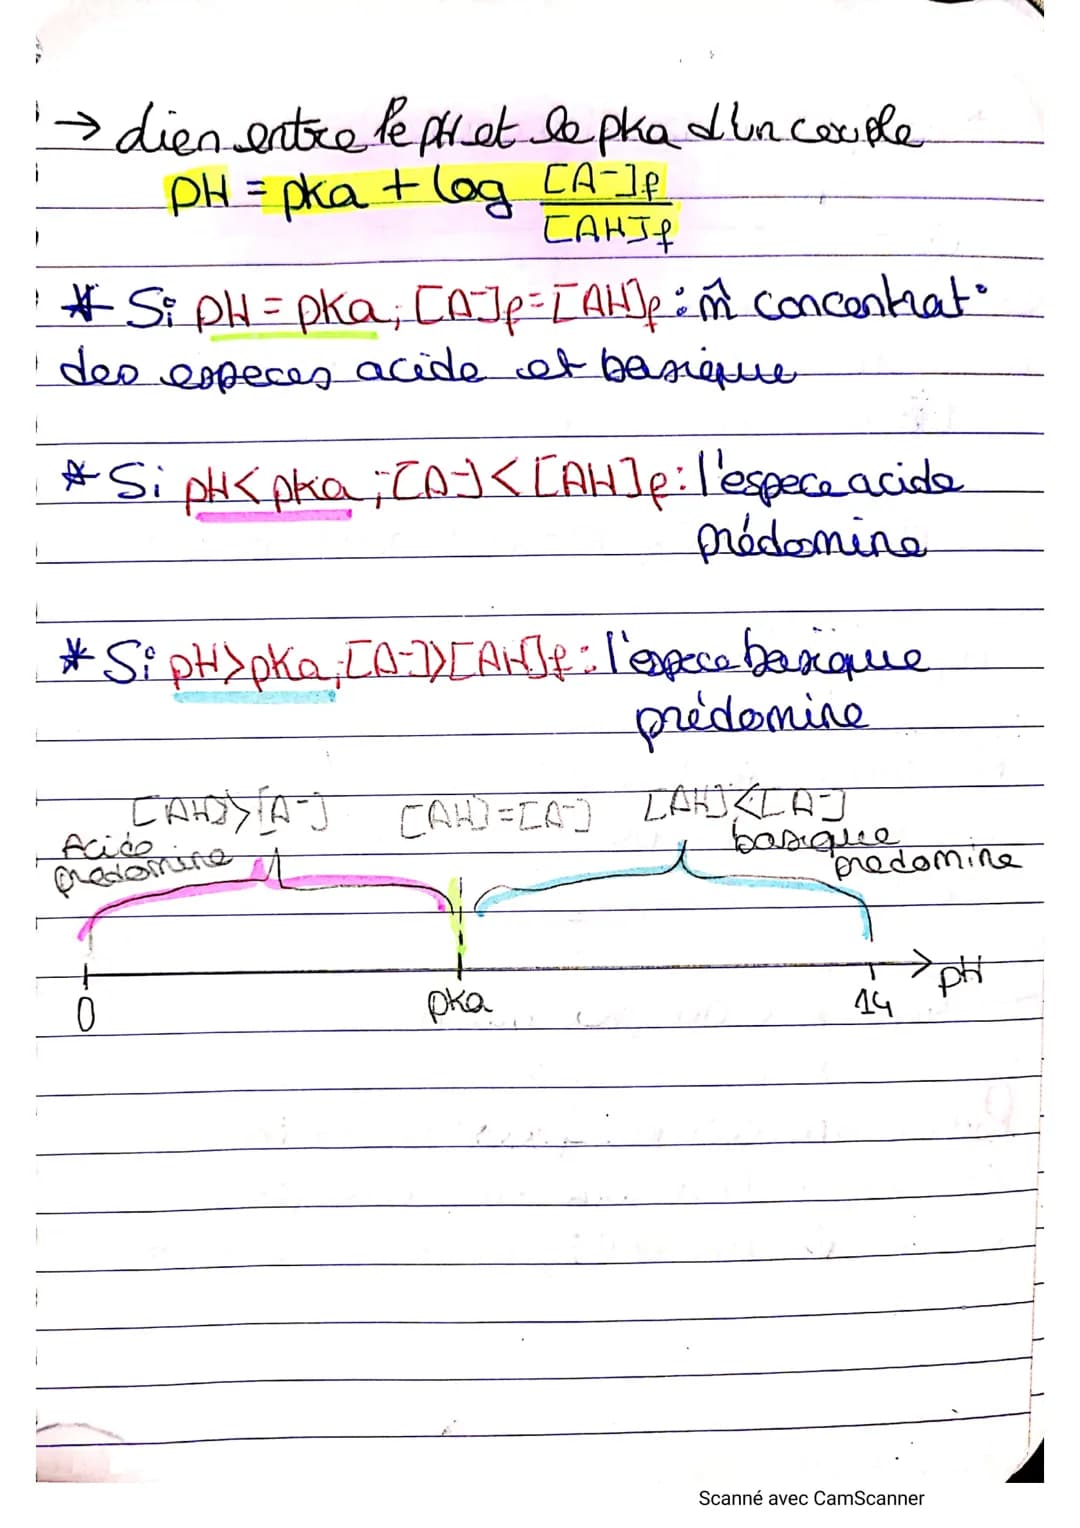 → Lien entre le pH et le pka d'un couple
pH = pka + log [A-]f
[AH]f
* Si pH = pka ; [A-]f = [AH]f : m̂ concentrat°
des especes acide et basique
* Si pH < pka ; [A-] < [AH]f : l'espece acide
prédomine
* Si pH > pka ; [A-] > [AH]f : l'espece basique
prédomine
[AH] > [A-] [AH] = [A-] [AH] < [A-]
Acide basique
predomine predomine
0 pka 14 pH
Scanné avec CamScanner